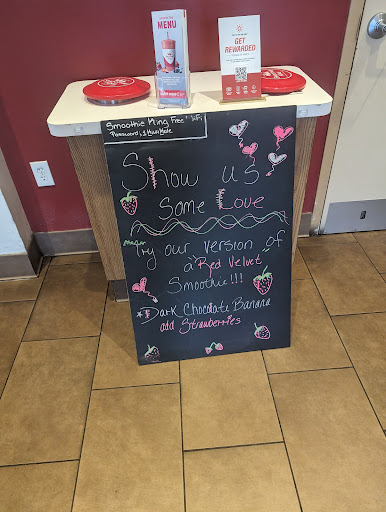 MENU
GET
REWARDED
Smoothie King Free WiFi
Password:
Show us
Some Love
Try our version of
a Red Velvet
Smoothie!!!
*Dark Chocolate Banana
add Strawberries